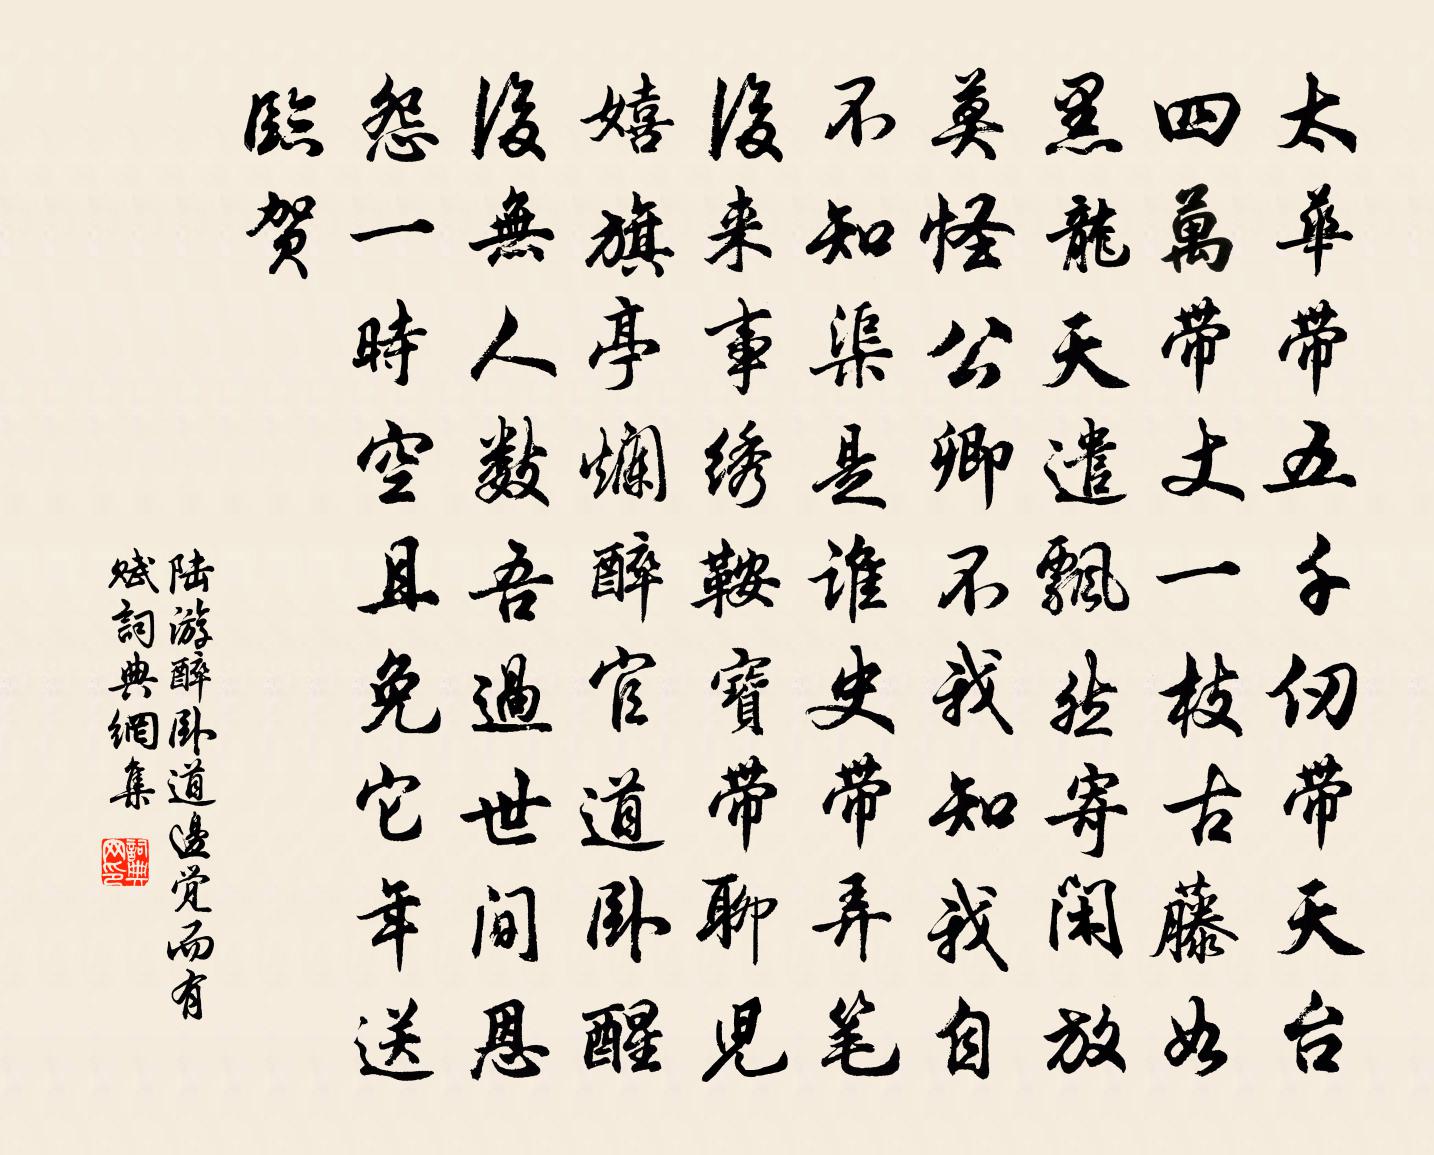 太華帶五千仞帶天台
四萬帶丈一枝古藤如
黑龍天遣飄然寄閑放
莫怪公卿不我知我自
不知渠是誰史帶弄笔
後来事绣鞍寶帶聊兒
嬉旗亭爛醉官道卧醒
後無人數吾過世間恩
怨一時空且免它年送
臨贺
陆游醉卧道邊觉而有
赋詞典網集
詞典网印